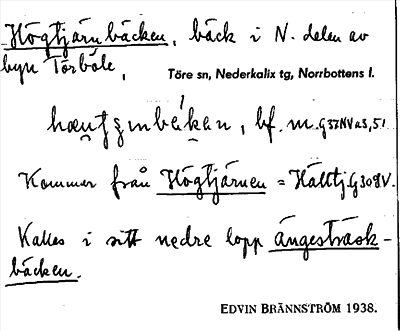 Högtjärnbäcken, bäck i N. delen av
byn Törböle,
Töre sn, Nederkalix tg, Norrbottens l.
bf. m.
Kommer från Högtjärnen = Hälltj.
Kallas i sitt nedre lopp ängesträsk-
bäcken.
EDVIN BRÄNNSTRÖM 1938.